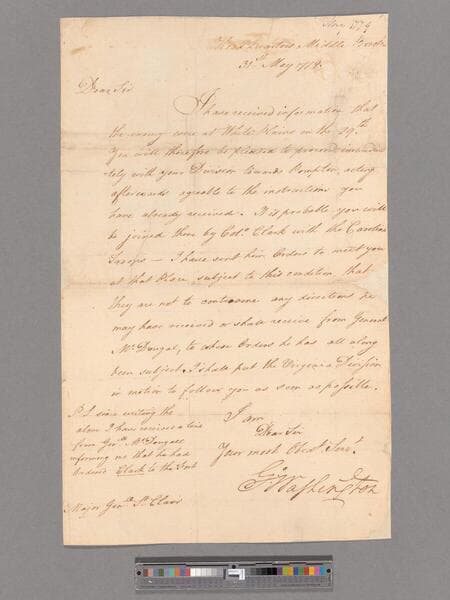 Head Quarters Middle Brook
31st May 1779.
Dear Sir
I have received information that
the enemy were at White Plains on the 29th
You will therefore be pleased to proceed immedia
tely with your Division towards Pompton, acting
afterwards agreable to the instructions you
have already received. It is probable you will
be joined there by Colo. Clark with the Carolina
Troops — I have sent him Orders to meet you
at that Place subject to this condition that
they are not to contravene any directions he
may have received or shall receive from General
McDougal, to whose Orders he has all along
been subject. I shall put the Virginia Division
in motion to follow you as soon as possible.
I am
Dear Sir
Your most Obedt Servt
Go Washington
P.S. since writing the
above I have received a letter
from Genl McDougall
informing me that he had
Ordered Clark to the Fort
Major Genl St Clair